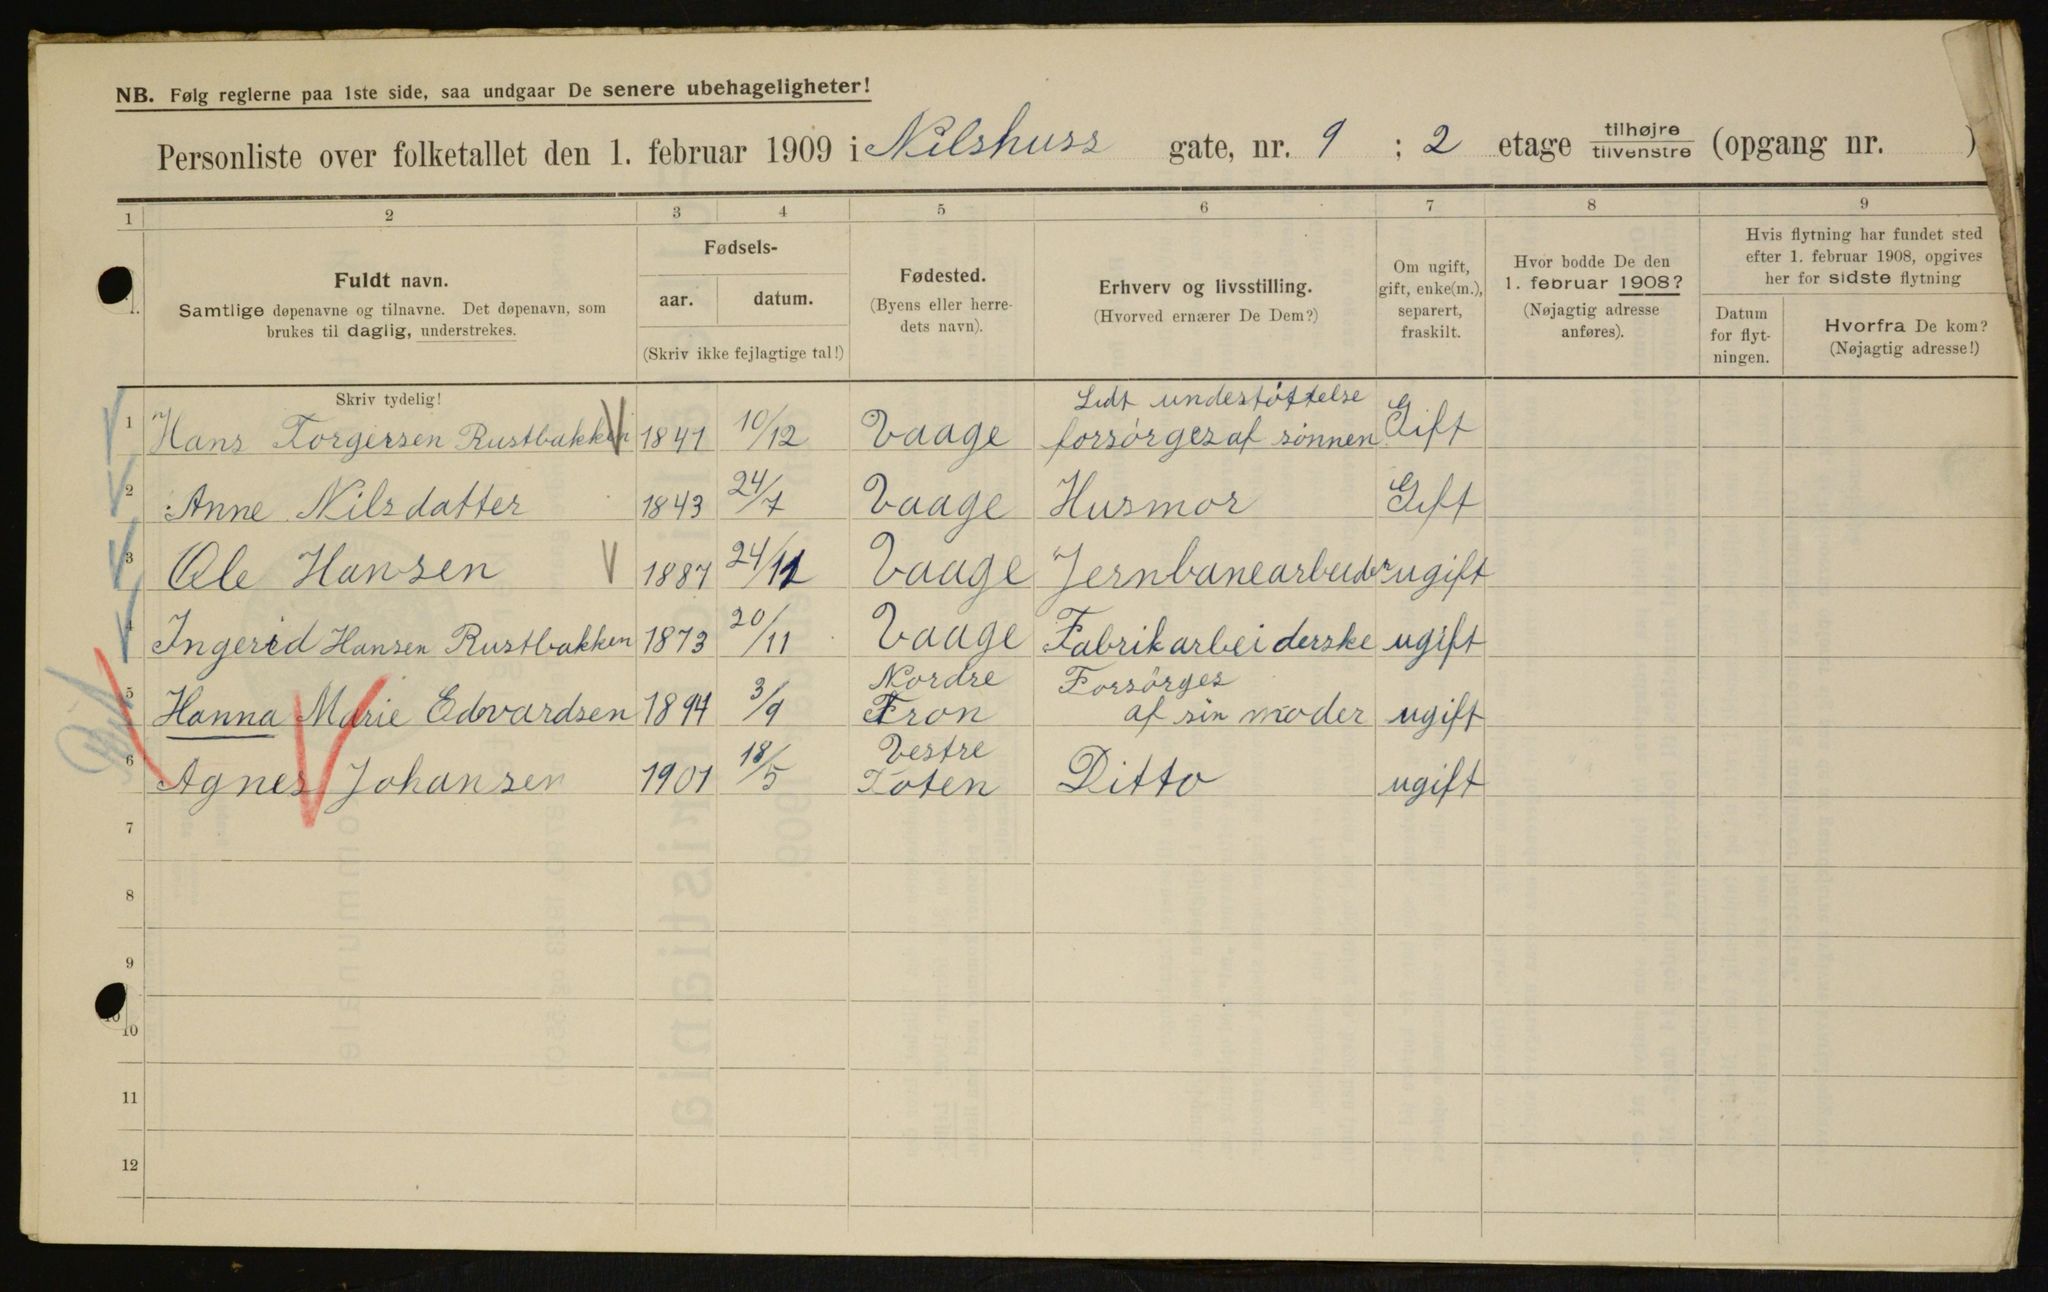 NB. Følg reglerne paa 1ste side, saa undgaar De senere ubehageligheter!
Personliste over folketallet den 1. februar 1909 i Nilshuss gate, nr. 9 ; 2 etage tilhøjre/tilvenstre (opgang nr. )
1 2 3 4 5 6 7 8 9
Fuldt navn.
Samtlige døpenavne og tilnavne. Det døpenavn, som
brukes til daglig, understrekes.
Fødsels-
aar. datum.
(Skriv ikke fejlagtige tal!)
Fødested.
(Byens eller herre-
dets navn).
Erhverv og livsstilling.
(Hvorved ernærer De Dem?)
Om ugift,
gift, enke(m.),
separert,
fraskilt.
Hvor bodde De den
1. februar 1908?
(Nøjagtig adresse
anføres).
Hvis flytning har fundet sted
efter 1. februar 1908, opgives
her for sidste flytning
Datum
for flyt-
ningen.
Hvorfra De kom?
(Nøjagtig adresse!)
Skriv tydelig!
Lidt understøttelse
1 Hans Torgersen Rustbakken 1841 10/12 Vaage forsørges af sønnen Gift
2 Anne Nilsdatter 1843 24/7 Vaage Husmor Gift
3 Ole Hansen 1887 24/11 Vaage Jernbanearbeider ugift
4 Ingerid Hansen Rustbakken 1873 20/11 Vaage Fabrikarbeiderske ugift
Nordre Forsørges
5 Hanna Marie Edvardsen 1894 3/9 Fron af sin moder ugift
Vestre
6 Agnes Johansen 1901 18/5 Toten Ditto ugift
7
8
9
10
11
12